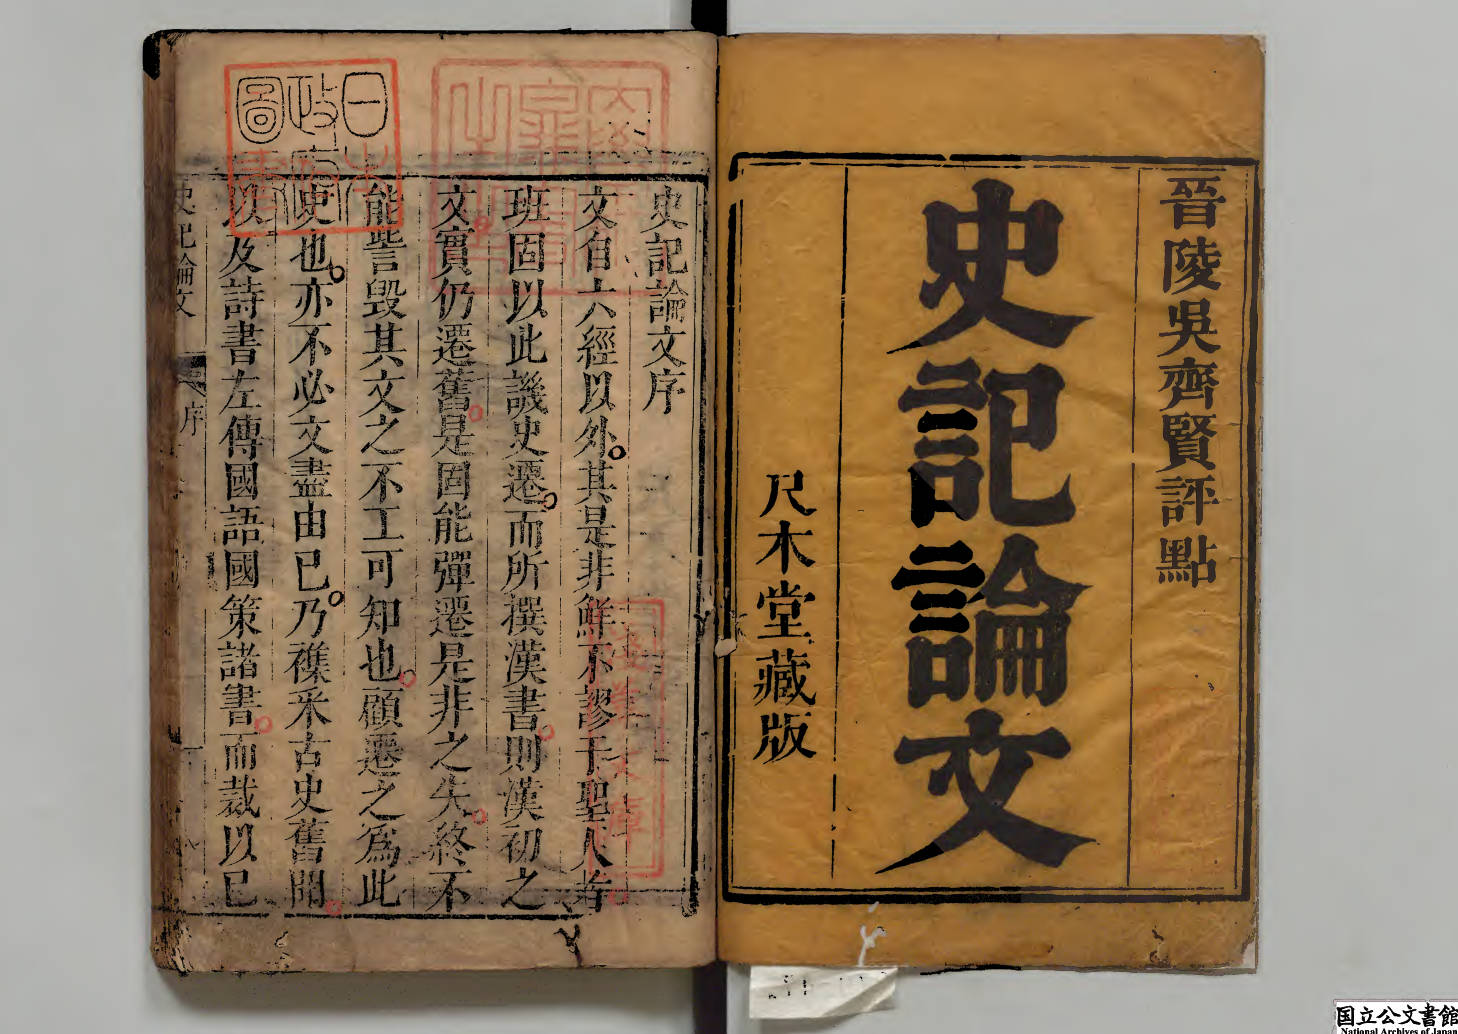 晉陵吳齊賢評點
史記論文
尺木堂藏版
史記論文序
文自六經以外其是非鮮不謬于聖人者
班固以此譏史遷而所撰漢書則漢初之
文實仍遷舊是固能彈遷是非之失終不
能訾毀其文之不工可知也顧遷之爲此
史也亦不必文盡由已乃襍釆古史舊聞
以及詩書左傳國語國策諸書而裁以已
史記論文
序
日本政府圖書
国立公文書館
National Archives of Japan